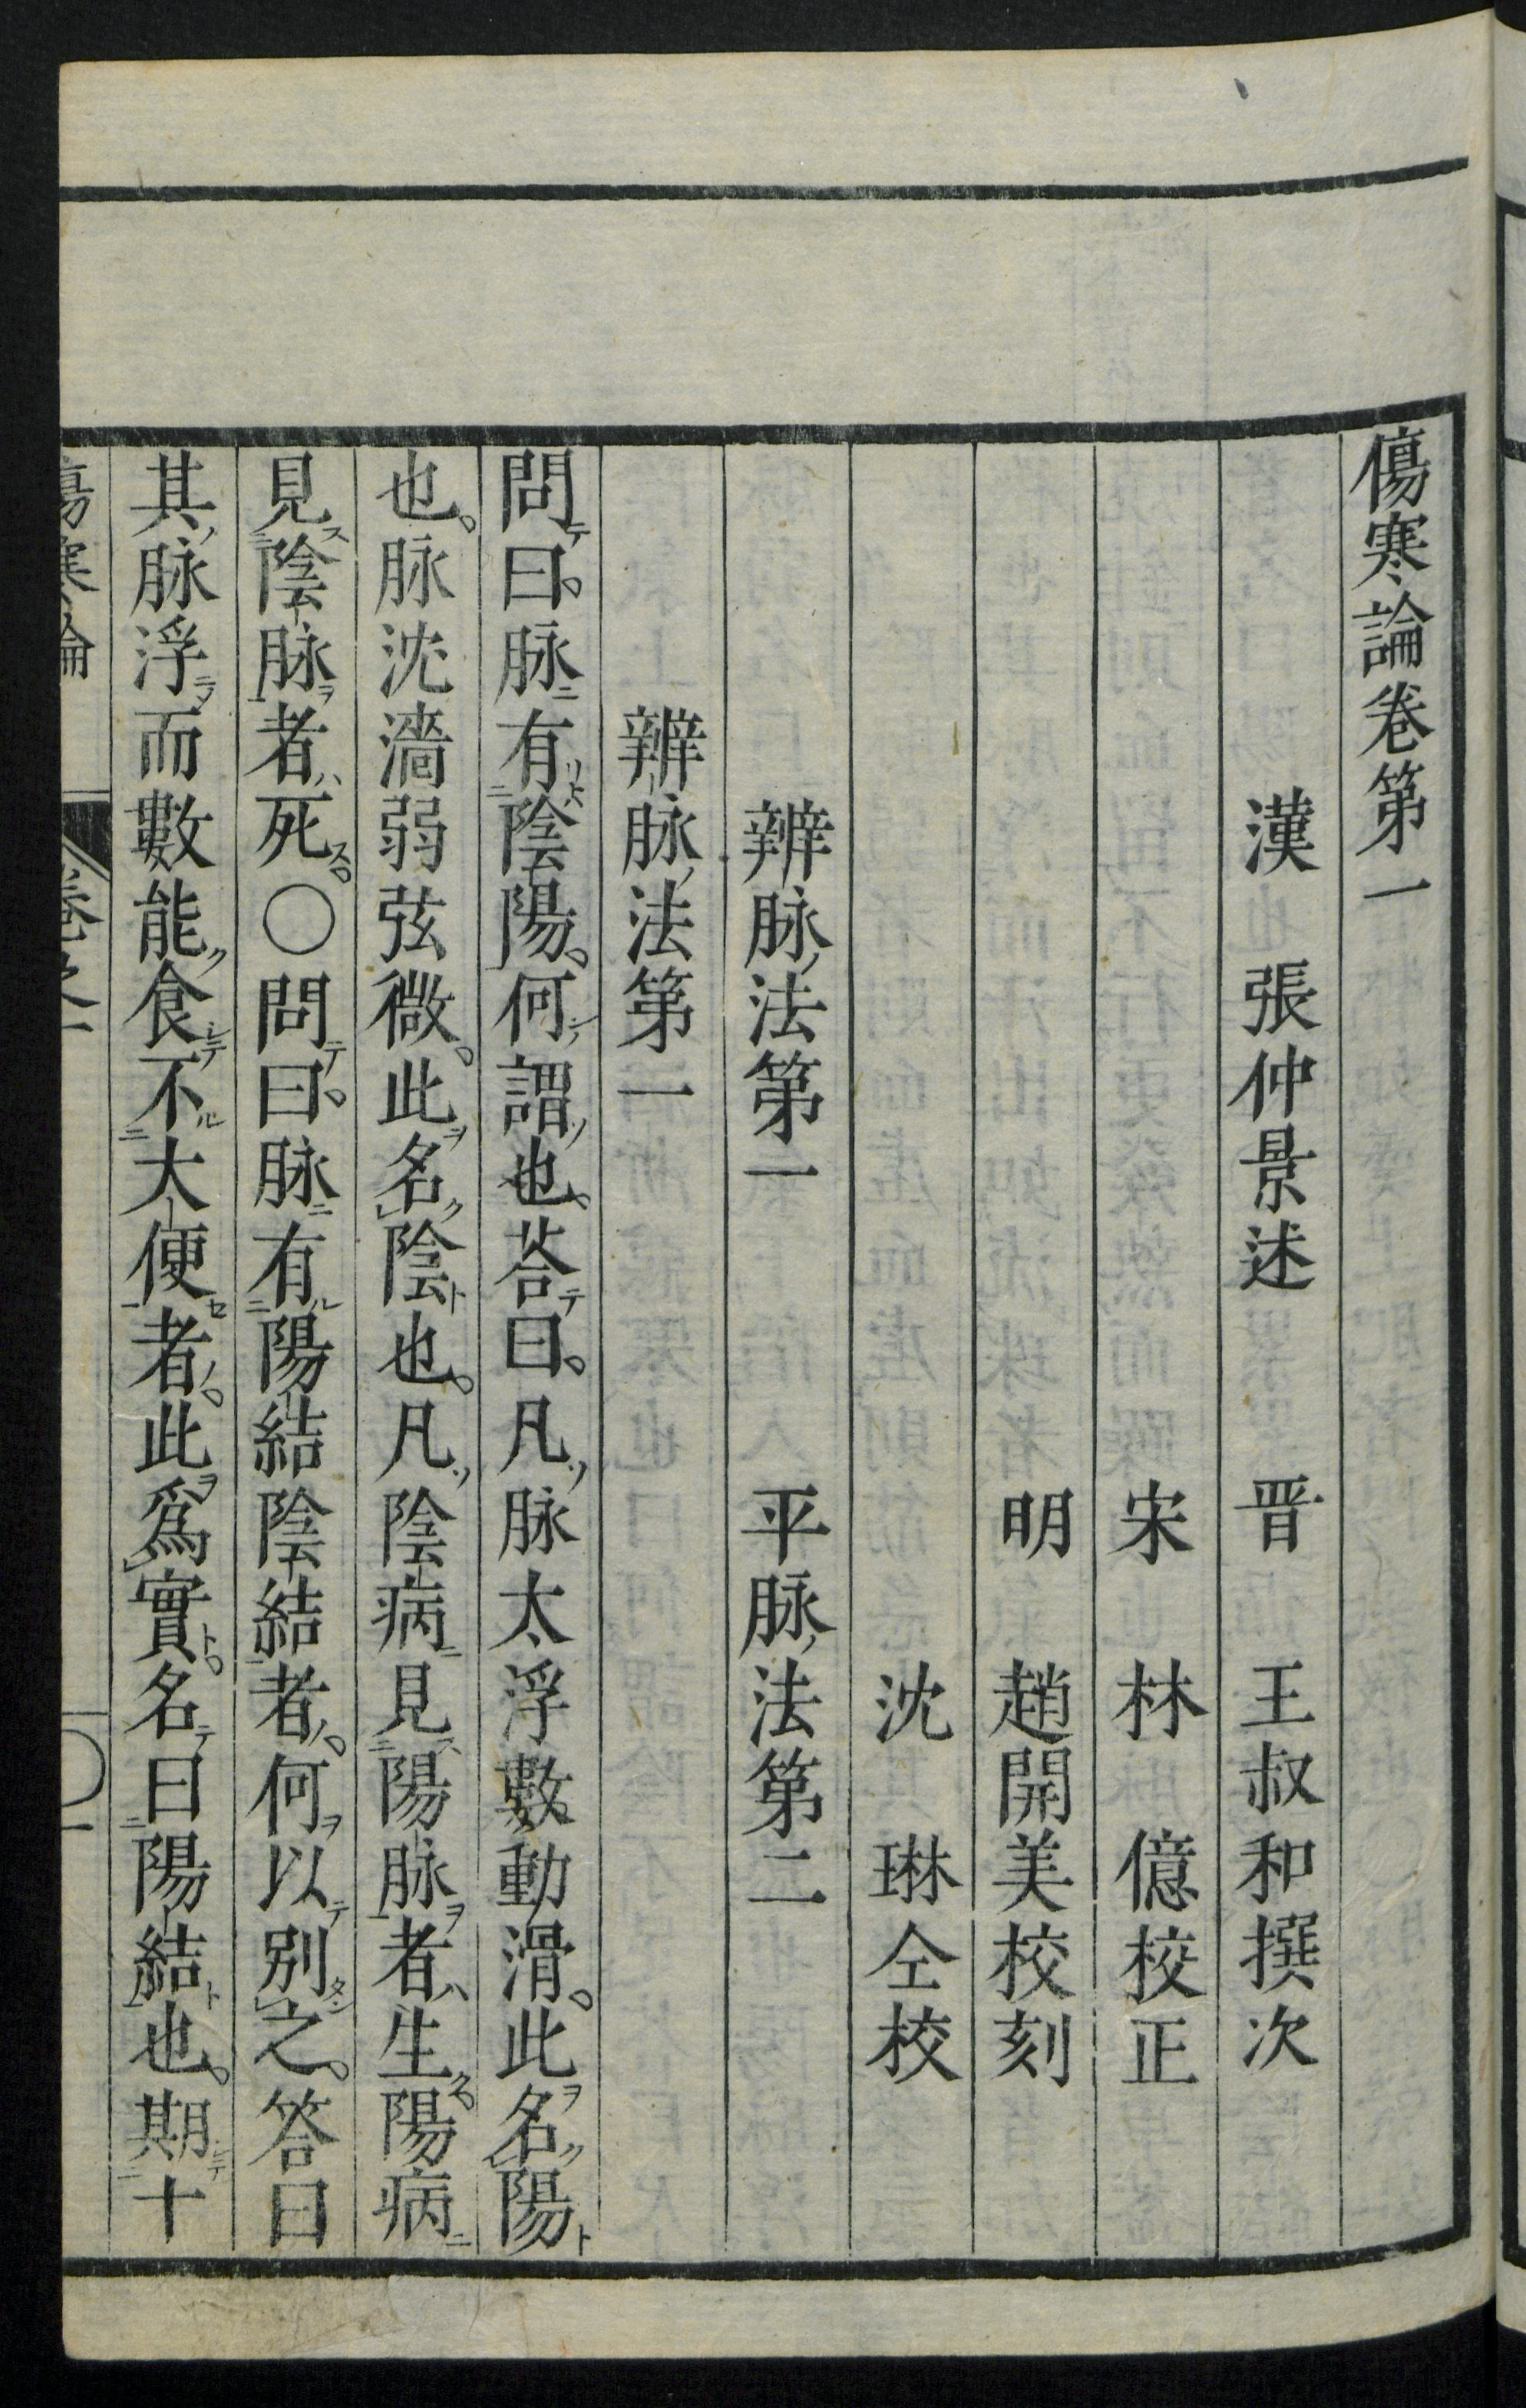 傷寒論卷第一
漢　張仲景述　晋　王叔和撰次
宋　林　億校正
明　趙開美校刻
沈　琳仝校
辨脉法第一　平脉法第二
辨脉法第一
問曰。脉有陰陽。何謂也。荅曰。凡脉大浮數動滑。此名陽
也。脉沈濇弱弦微。此名陰也。凡陰病見陽脉者生。陽病
見陰脉者死。○問曰。脉有陽結陰結者。何以別之。答曰
其脉浮而數能食不大便者。此爲實。名曰陽結也。期十
傷寒論　卷之一　〇一